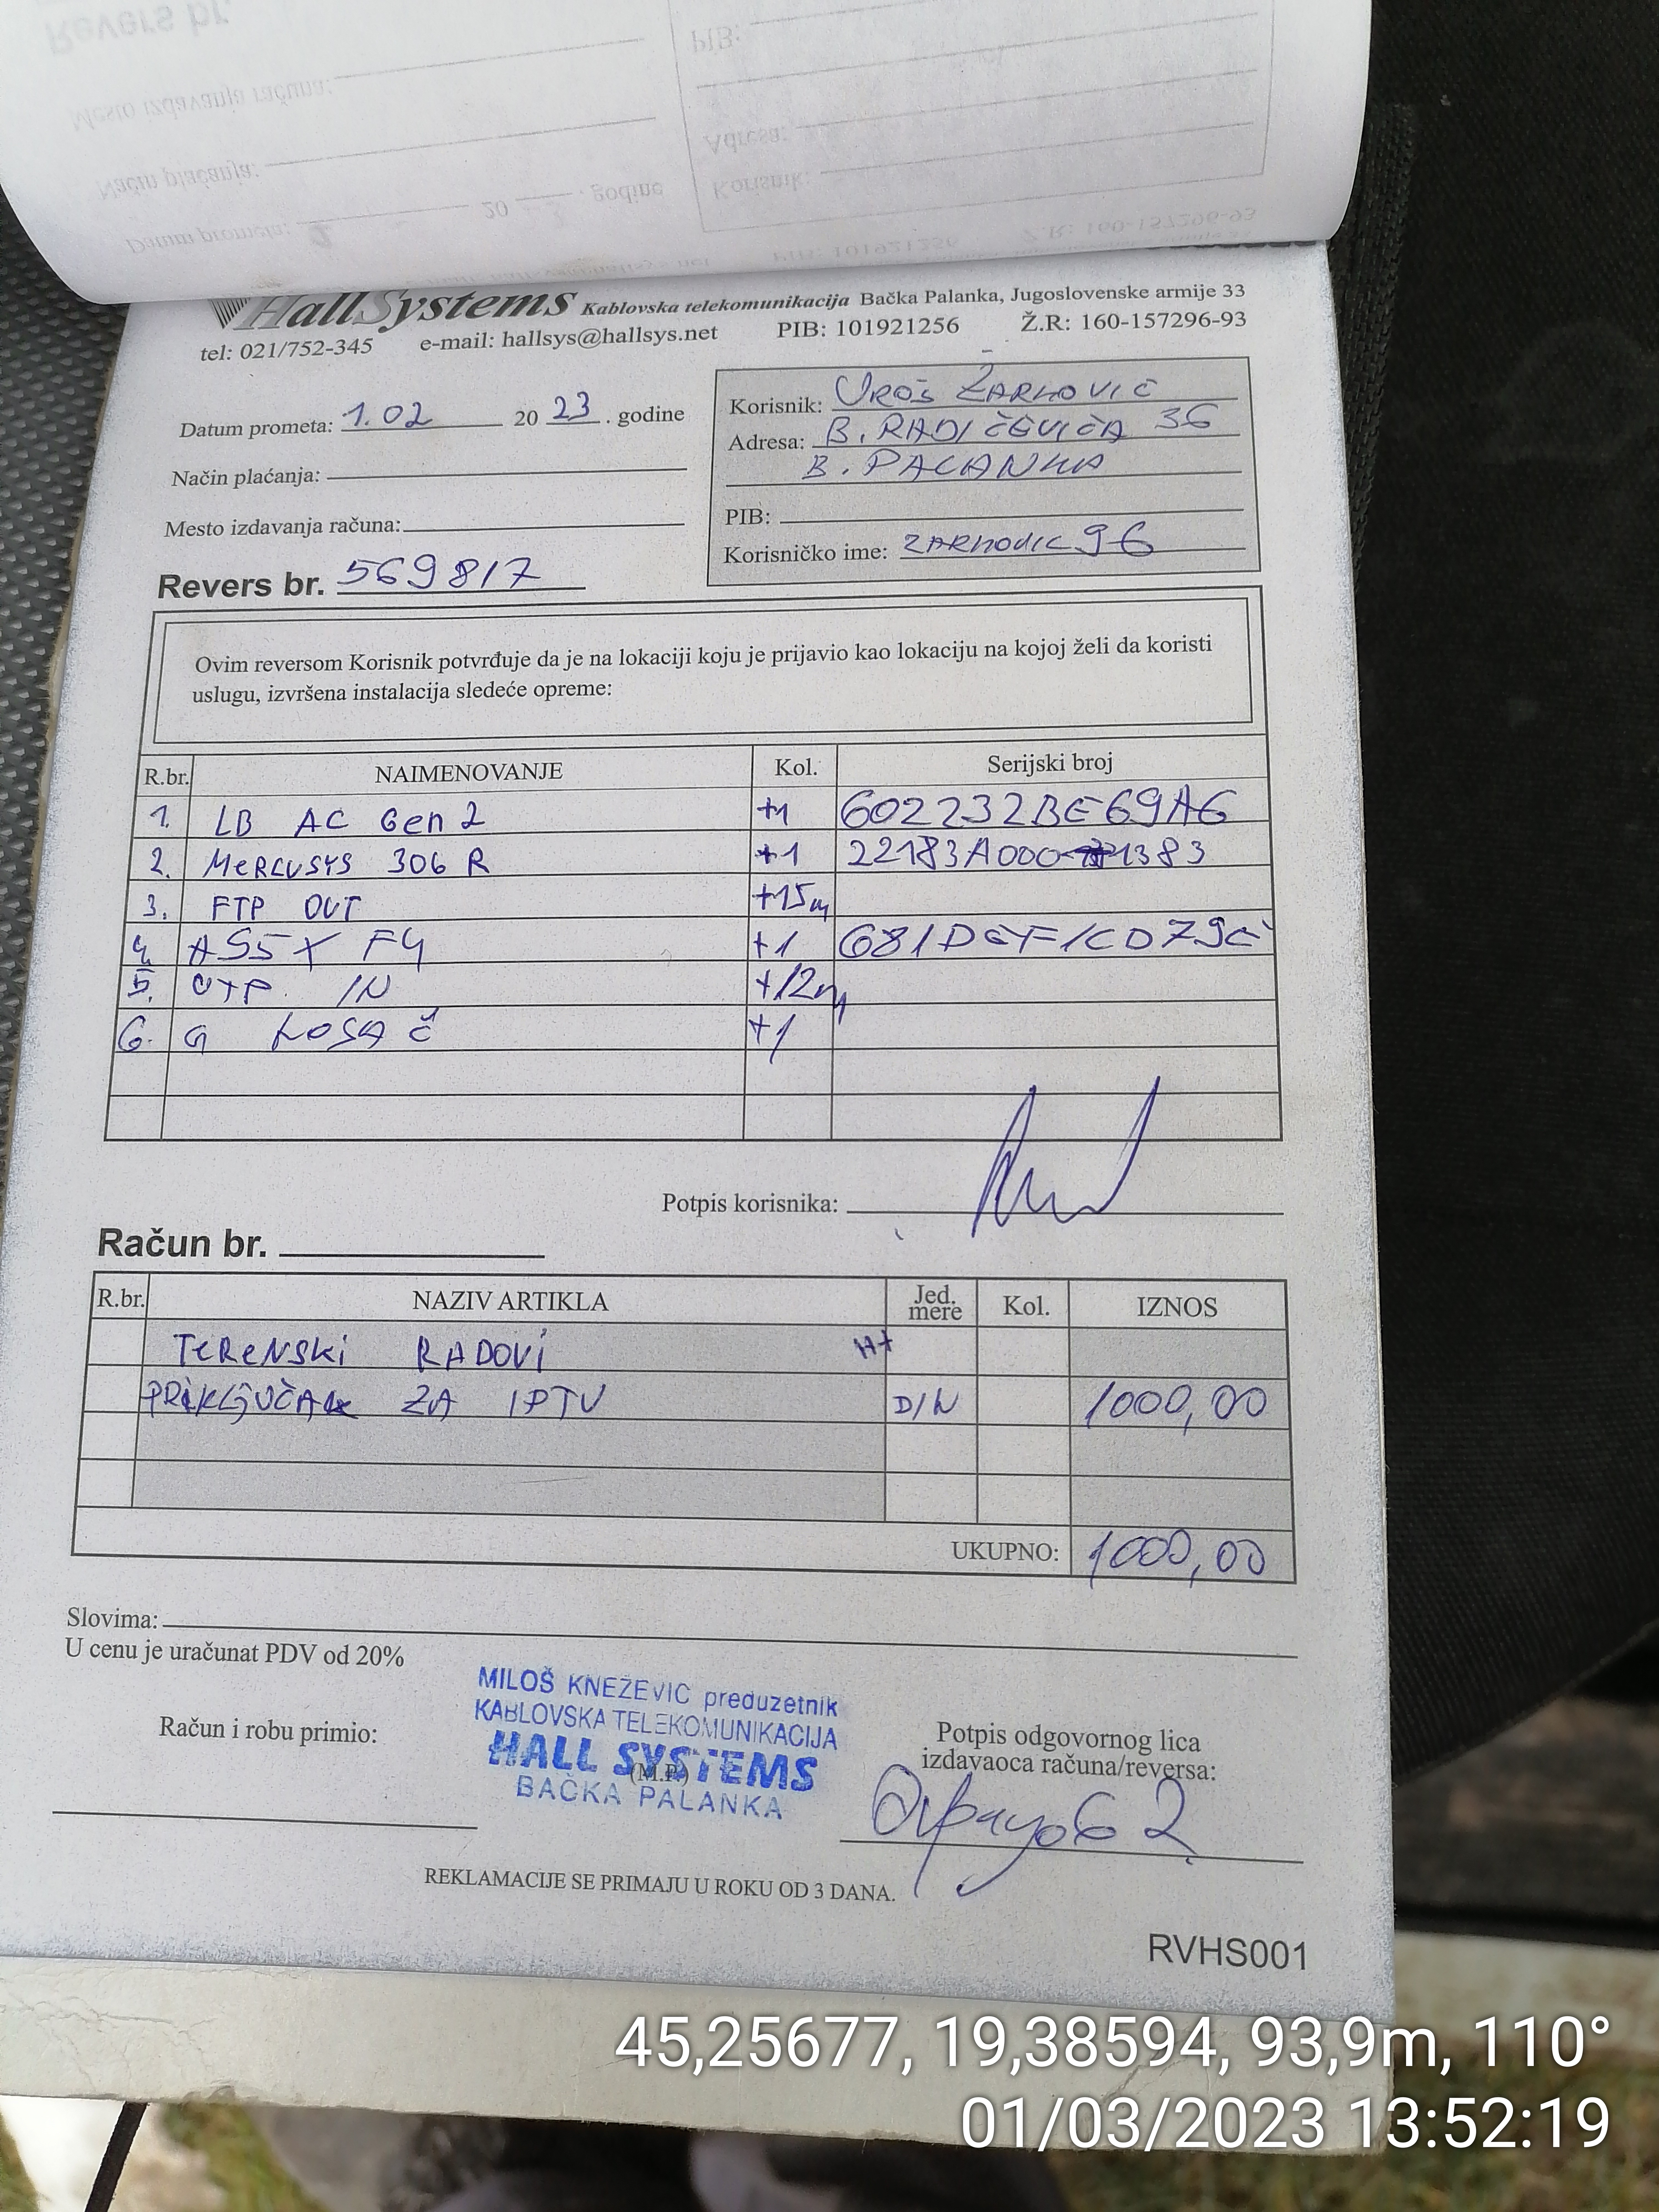 HallSystems Kablovska telekomunikacija Bačka Palanka, Jugoslovenske armije 33
tel: 021/752-345 e-mail: hallsys@hallsys.net PIB: 101921256 Ž.R: 160-157296-93
Datum prometa: 1.02 20 23 . godine
Način plaćanja:
Mesto izdavanja računa:
Revers br. 569817
Korisnik: UROŠ ŽARKOVIĆ
Adresa: B. RADIČEVIĆA 36
B. PALANKA
PIB:
Korisničko ime: ZARKOVIC96
Ovim reversom Korisnik potvrđuje da je na lokaciji koju je prijavio kao lokaciju na kojoj želi da koristi
uslugu, izvršena instalacija sledeće opreme:
R.br. NAIMENOVANJE Kol. Serijski broj
1. LB AC Gen 2 +1 602232BE69A6
2. MERCUSYS 306 R +1
3. FTP OUT +15m
4. A55X F4 +1
5. UTP IN +12m
6. G NOSAČ +1
Potpis korisnika:
Račun br.
R.br. NAZIV ARTIKLA Jed. mere Kol. IZNOS
TERENSKI RADOVI
PRIKLJUČAK ZA IPTV DIN 1000,00
UKUPNO: 1000,00
Slovima:
U cenu je uračunat PDV od 20%
MILOŠ KNEŽEVIĆ preduzetnik
KABLOVSKA TELEKOMUNIKACIJA
HALL SYSTEMS
(M.P.)
BAČKA PALANKA
Račun i robu primio:
Potpis odgovornog lica
izdavaoca računa/reversa:
REKLAMACIJE SE PRIMAJU U ROKU OD 3 DANA.
RVHS001
45,25677, 19,38594, 93,9m, 110°
01/03/2023 13:52:19